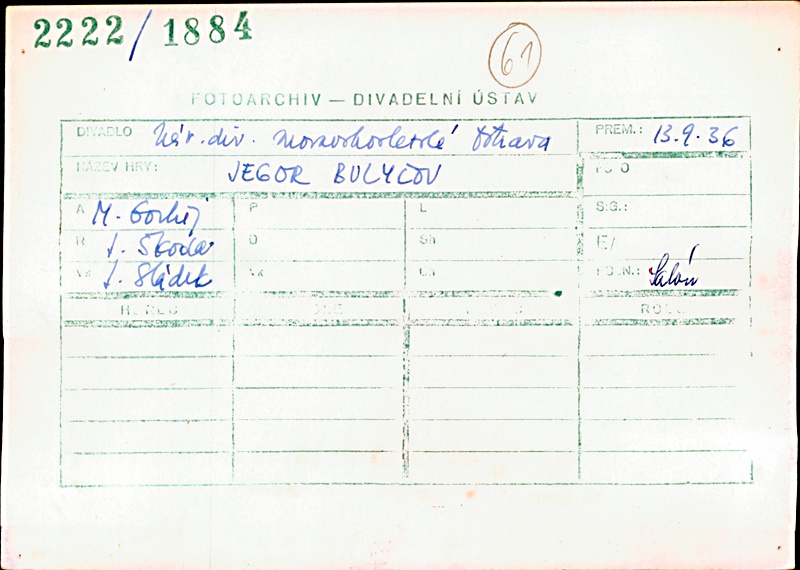 2222/1884
61
FOTOARCHIV — DIVADELNÍ ÚSTAV
DIVADLO Nár. div. moravskoslezské Ostrava PREM.: 13.9.36
NÁZEV HRY: JEGOR BULYČOV FOTO
A M. Gorkij P L SIG.:
R J. Škoda D Sh E/
Vs J. Sládek Vk Ch POZN.: Salón
HEREC ROLE